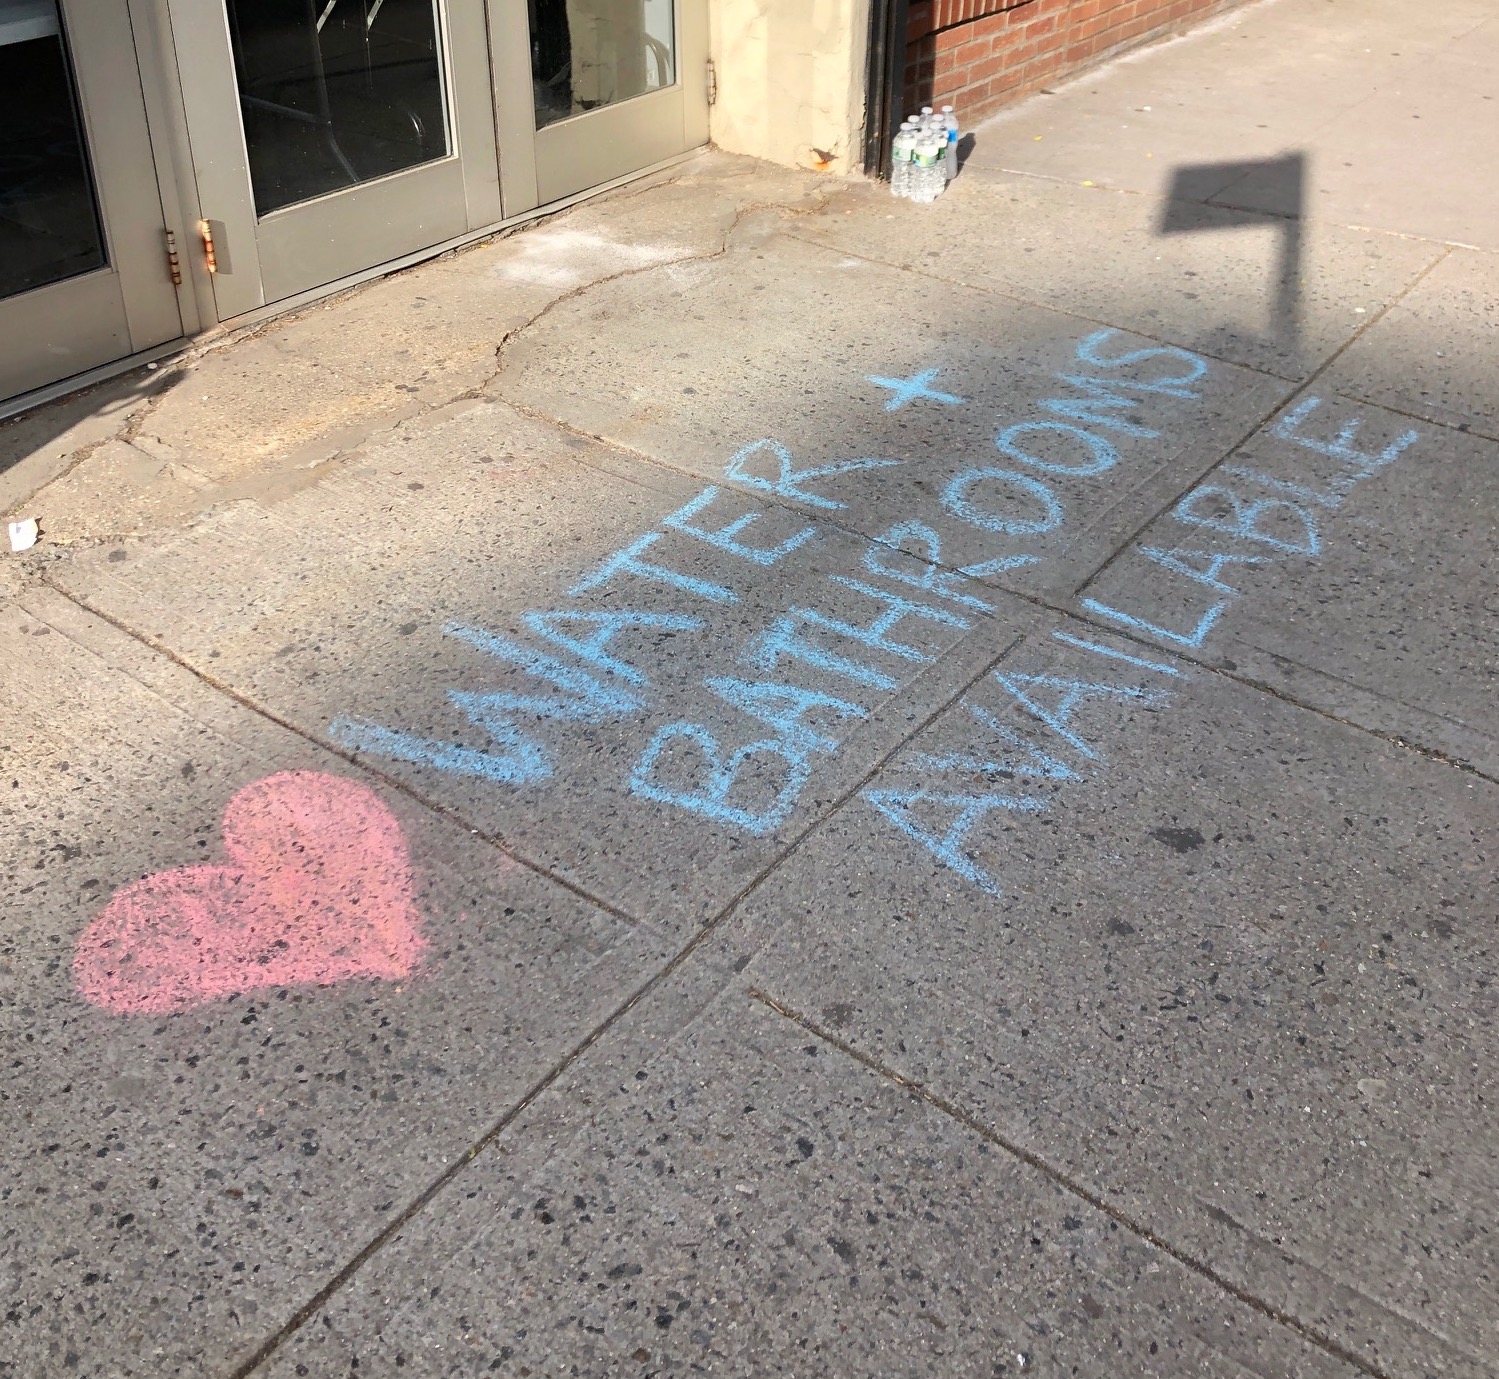 WATER +
BATHROOMS
AVAILABLE